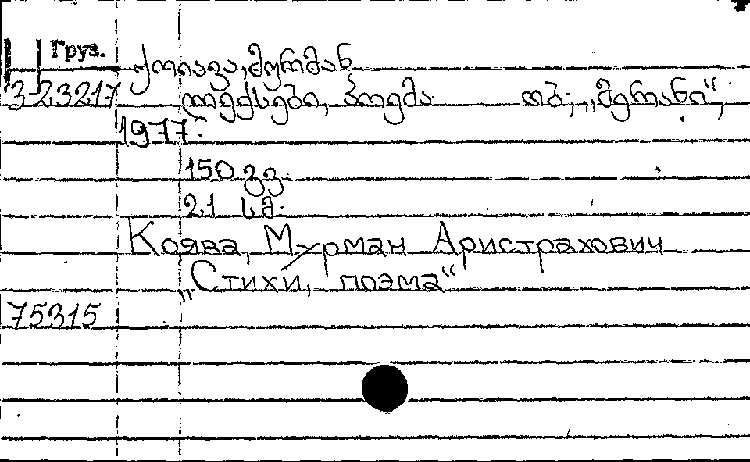 Груз.
ქორავა, მურმან
323217 ლექსები, პოემა თბ., „მერანი“,
1977.
150 გვ.
21 სმ.
Коява, Мурман Аристрахович
„Стихи, поэма“
75315